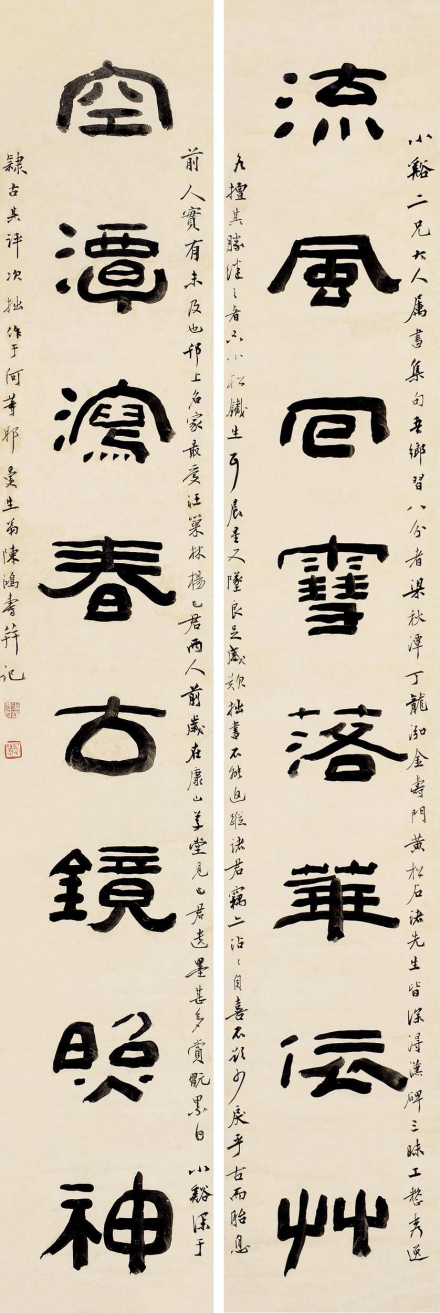 小谿二兄大人屬書集句吾鄉習八分者梁秋潭丁龍泓金壽門黃松石諸先生皆深得漢碑三昧工整秀逸
流風回雪落華依艸
各擅其勝繼之者亦小松鐵生耳晨星又墜良足感歎拙書不能追蹤諸君竊亦沾沾自喜不欲少戾乎古而胎息
前人實有未及也邗上名家最愛汪巢林楊已君兩人前歲在康山草堂見已君遺墨甚多賞翫累日小谿深于
空潭瀉春古鏡照神
隸古其評次拙作于何等耶曼生弟陳鴻壽并記